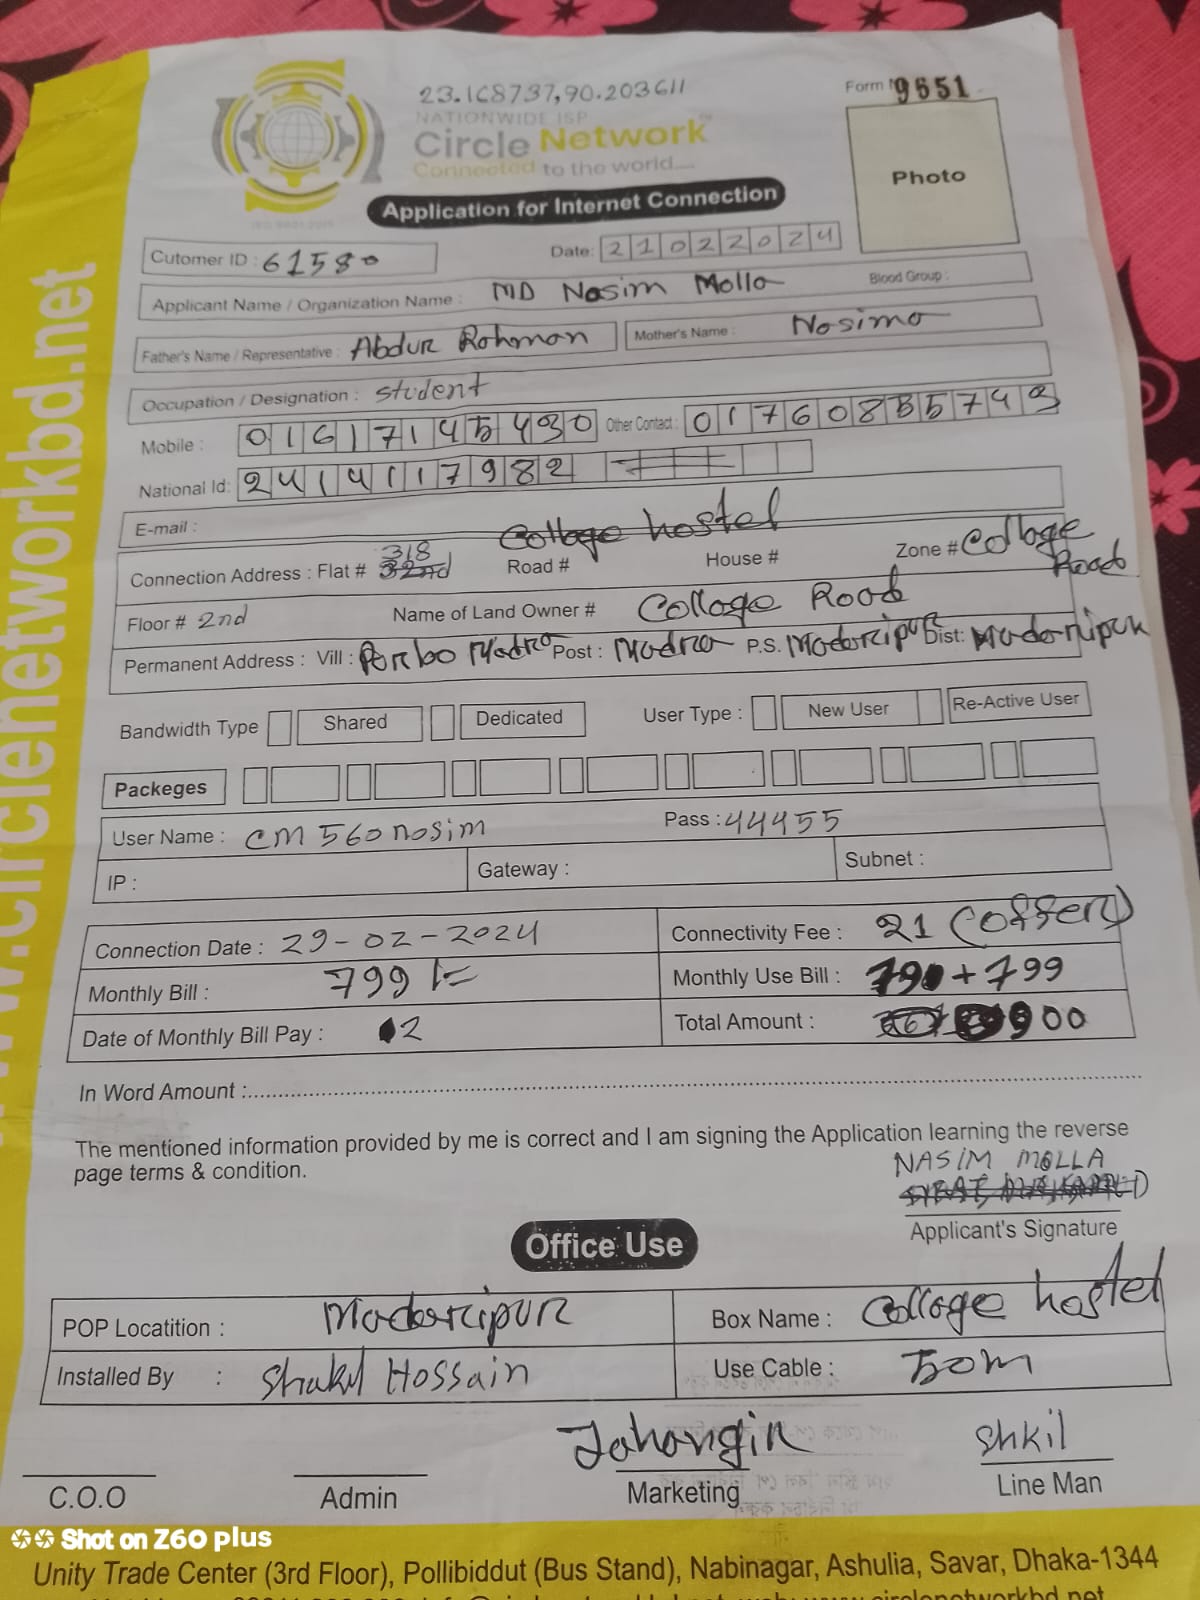 23.168737,90.203611
Form N 9651
NATIONWIDE ISP
Circle Network
Connected to the world....
Photo
Application for Internet Connection
Cutomer ID : 61580
Date: 21022024
Applicant Name / Organization Name : MD Nasim Molla
Blood Group :
Father's Name / Representative : Abdur Rohman
Mother's Name : Nosima
Occupation / Designation : student
Mobile : 01617145430 Other Contact : 01760885743
National Id: 2414117982
E-mail :
College hostel
Connection Address : Flat # 318 Road # House # Zone # College Road
Floor # 2nd Name of Land Owner # College Road
Permanent Address : Vill : Post : Madra P.S. Madaripur Dist: Madaripur
Bandwidth Type Shared Dedicated User Type : New User Re-Active User
Packeges
User Name : CM560nosim Pass : 44455
IP : Gateway : Subnet :
Connection Date : 29-02-2024 Connectivity Fee : 21 (offer)
Monthly Bill : 799/= Monthly Use Bill : + 799
Date of Monthly Bill Pay : 2 Total Amount : 900
In Word Amount :
The mentioned information provided by me is correct and I am signing the Application learning the reverse
page terms & condition.
NASIM MOLLA
Applicant's Signature
Office Use
POP Locatition : Madaripur Box Name : College hostel
Installed By : Shakil Hossain Use Cable : 50m
Jahangir Shkil
C.O.O Admin Marketing Line Man
Shot on Z60 plus
Unity Trade Center (3rd Floor), Pollibiddut (Bus Stand), Nabinagar, Ashulia, Savar, Dhaka-1344
www.circlenetworkbd.net